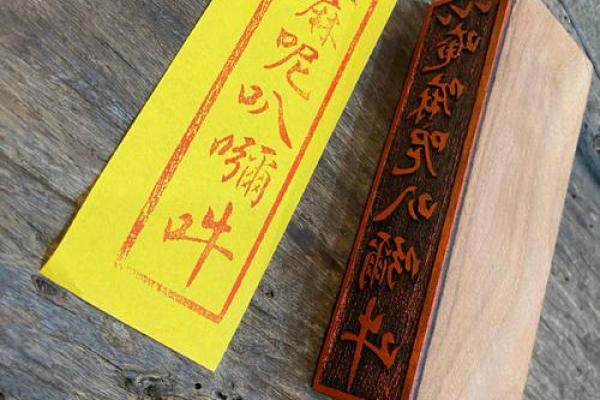 嘛呢叭彌吽
唵嘛呢叭彌吽